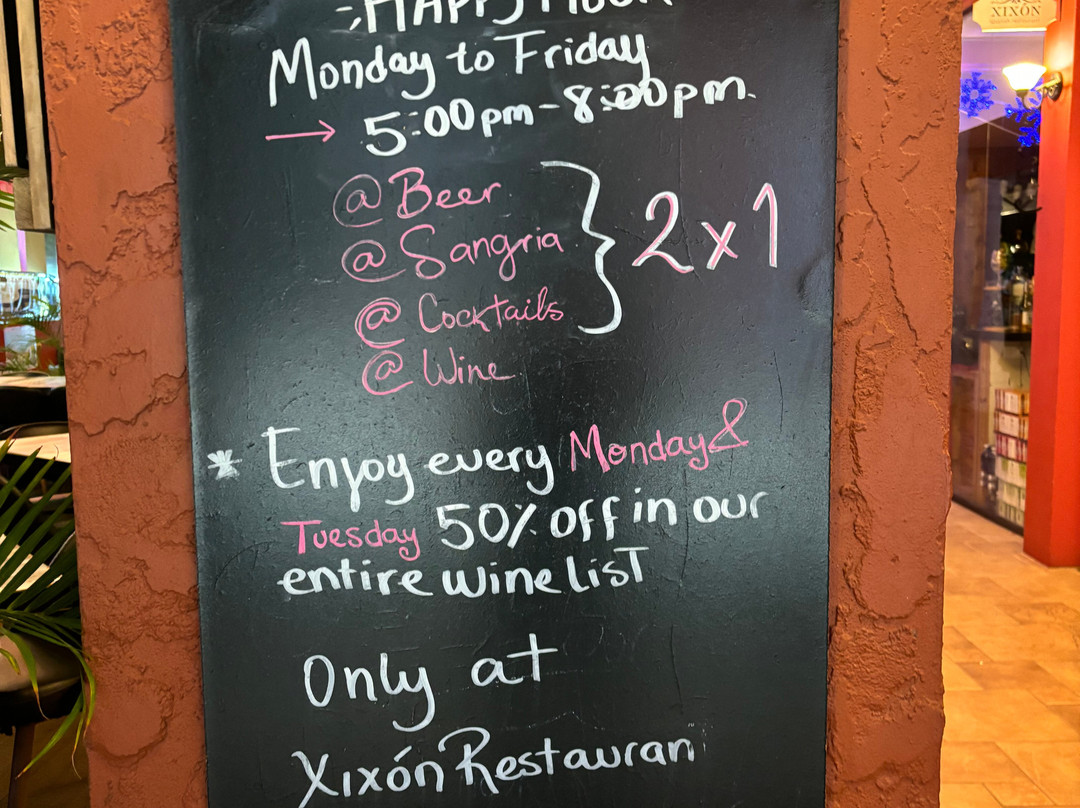 HAPPY HOUR
Monday to Friday
→ 5:00pm - 8:00pm.
@ Beer
@ Sangria
@ Cocktails
@ Wine
2x1
* Enjoy every Monday &
Tuesday 50% off in our
entire wine list
Only at
Xixón Restauran
XIXÓN